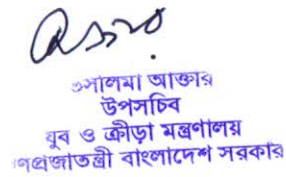 সালমা আক্তার
উপসচিব
যুব ও ক্রীড়া মন্ত্রণালয়
গণপ্রজাতন্ত্রী বাংলাদেশ সরকার